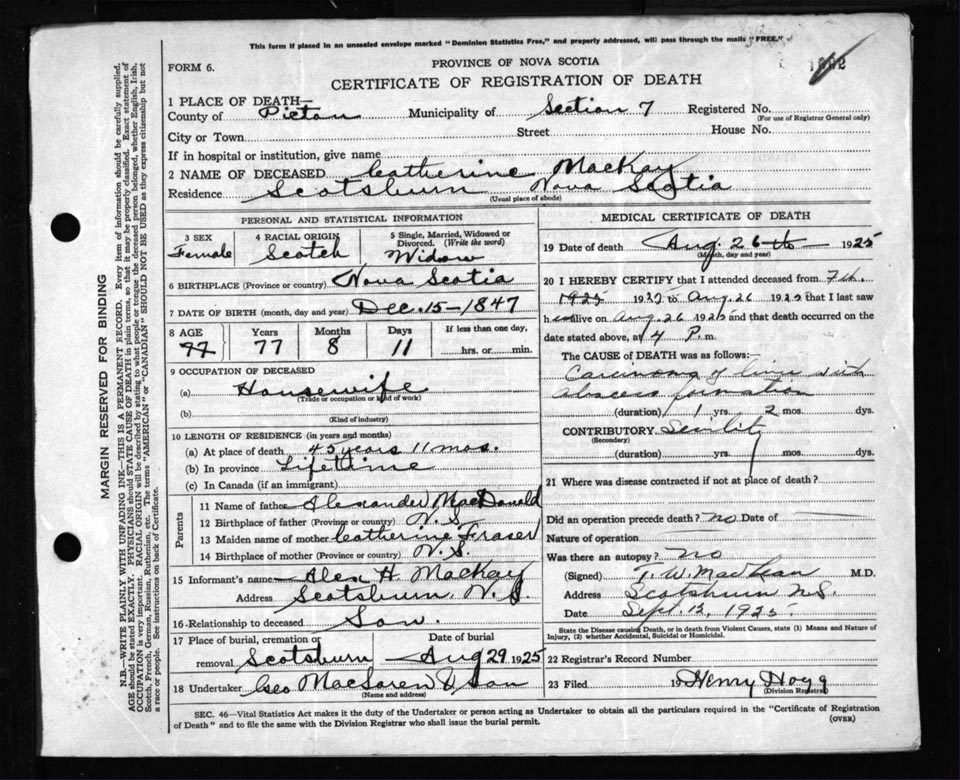 This form if placed in an unsealed envelope marked "Dominion Statistics Free," and properly addressed, will pass through the mails "FREE."
FORM 6.
PROVINCE OF NOVA SCOTIA
CERTIFICATE OF REGISTRATION OF DEATH
1 PLACE OF DEATH—
County of Pictou Municipality of Section 7 Registered No.
(For use of Registrar General only)
City or Town Street House No.
If in hospital or institution, give name
2 NAME OF DECEASED Catherine MacKay
Residence Scotsburn Nova Scotia
(Usual place of abode)
PERSONAL AND STATISTICAL INFORMATION
3 SEX Female
4 RACIAL ORIGIN Scotch
5 Single, Married, Widowed or Divorced. (Write the word) Widow
6 BIRTHPLACE (Province or country) Nova Scotia
7 DATE OF BIRTH (month, day and year) Dec. 15 - 1847
8 AGE Years Months Days If less than one day,
77 77 8 11 hrs. or min.
9 OCCUPATION OF DECEASED
(a) Housewife
(Trade or occupation or kind of work)
(b)
(Kind of industry)
10 LENGTH OF RESIDENCE (in years and months)
(a) At place of death 45 years 11 mos.
(b) In province Lifetime
(c) In Canada (if an immigrant)
Parents
11 Name of father Alexander MacDonald
12 Birthplace of father (Province or country) N. S.
13 Maiden name of mother Catherine Fraser
14 Birthplace of mother (Province or country) N. S.
15 Informant's name Alex H. MacKay
Address Scotsburn, N. S.
16 Relationship to deceased Son.
17 Place of burial, cremation or removal Scotsburn Date of burial Aug 29, 1925
18 Undertaker Geo MacLaren & Son
(Name and address)
MEDICAL CERTIFICATE OF DEATH
19 Date of death Aug. 26th 1925
(Month, day and year)
20 I HEREBY CERTIFY that I attended deceased from Feb.
1925 to Aug. 26 1925 that I last saw
h alive on Aug. 26 1925 and that death occurred on
date stated above, at 4 P. m.
The CAUSE OF DEATH was as follows:
Carcinoma of liver with
abscess formation
(duration) 1 yrs. 2 mos. dys.
CONTRIBUTORY Senility
(Secondary)
(duration) yrs. mos. dys.
21 Where was disease contracted if not at place of death?
Did an operation precede death? no Date of
Nature of operation
Was there an autopsy? no
(Signed) T. W. MacLean M.D.
Address Scotsburn N.S.
Date Sept. 12, 1925
State the Disease causing Death, or in death from Violent Causes, state (1) Means and Nature of Injury, (2) whether Accidental, Suicidal or Homicidal.
22 Registrar's Record Number
23 Filed 19 Henry Hogg
(Division Registrar)
SEC. 46—Vital Statistics Act makes it the duty of the Undertaker or person acting as Undertaker to obtain all the particulars required in the "Certificate of Registration
of Death" and to file the same with the Division Registrar who shall issue the burial permit.
(OVER)
MARGIN RESERVED FOR BINDING
N.B.—WRITE PLAINLY WITH UNFADING INK—THIS IS A PERMANENT RECORD. Every item of information should be carefully supplied.
AGE should be stated EXACTLY. PHYSICIANS should STATE CAUSE OF DEATH in plain terms, so that it may be properly classified. Exact statement of
OCCUPATION is very important. RACIAL ORIGIN will be described by stating to what people or tongue the deceased person belonged, whether English, Irish,
Scotch, French, German, Russian, Ruthenian, etc. The terms "AMERICAN" or "CANADIAN" SHOULD NOT BE USED as they express citizenship but not
a race or people. See instructions on back of Certificate.